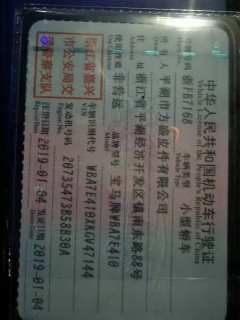 中华人民共和国机动车行驶证
Vehicle License of the People's Republic of China
号牌号码 浙FB7168 车辆类型 小型轿车
Plate No. Vehicle Type
所有人 平湖市力盛皮件有限公司
Owner
住址 浙江省平湖经济开发区镇南东路88号
Address
使用性质 非营运 品牌型号 宝马牌WBA7E410
Use Character Model
浙江省嘉兴
市公安局交
通警察支队
车辆识别代号 WBA7E410XKGV47144
VIN
发动机号码 20735473B58B30A
Engine No.
注册日期 2019-01-04 发证日期 2019-01-04
Register Date Issue Date